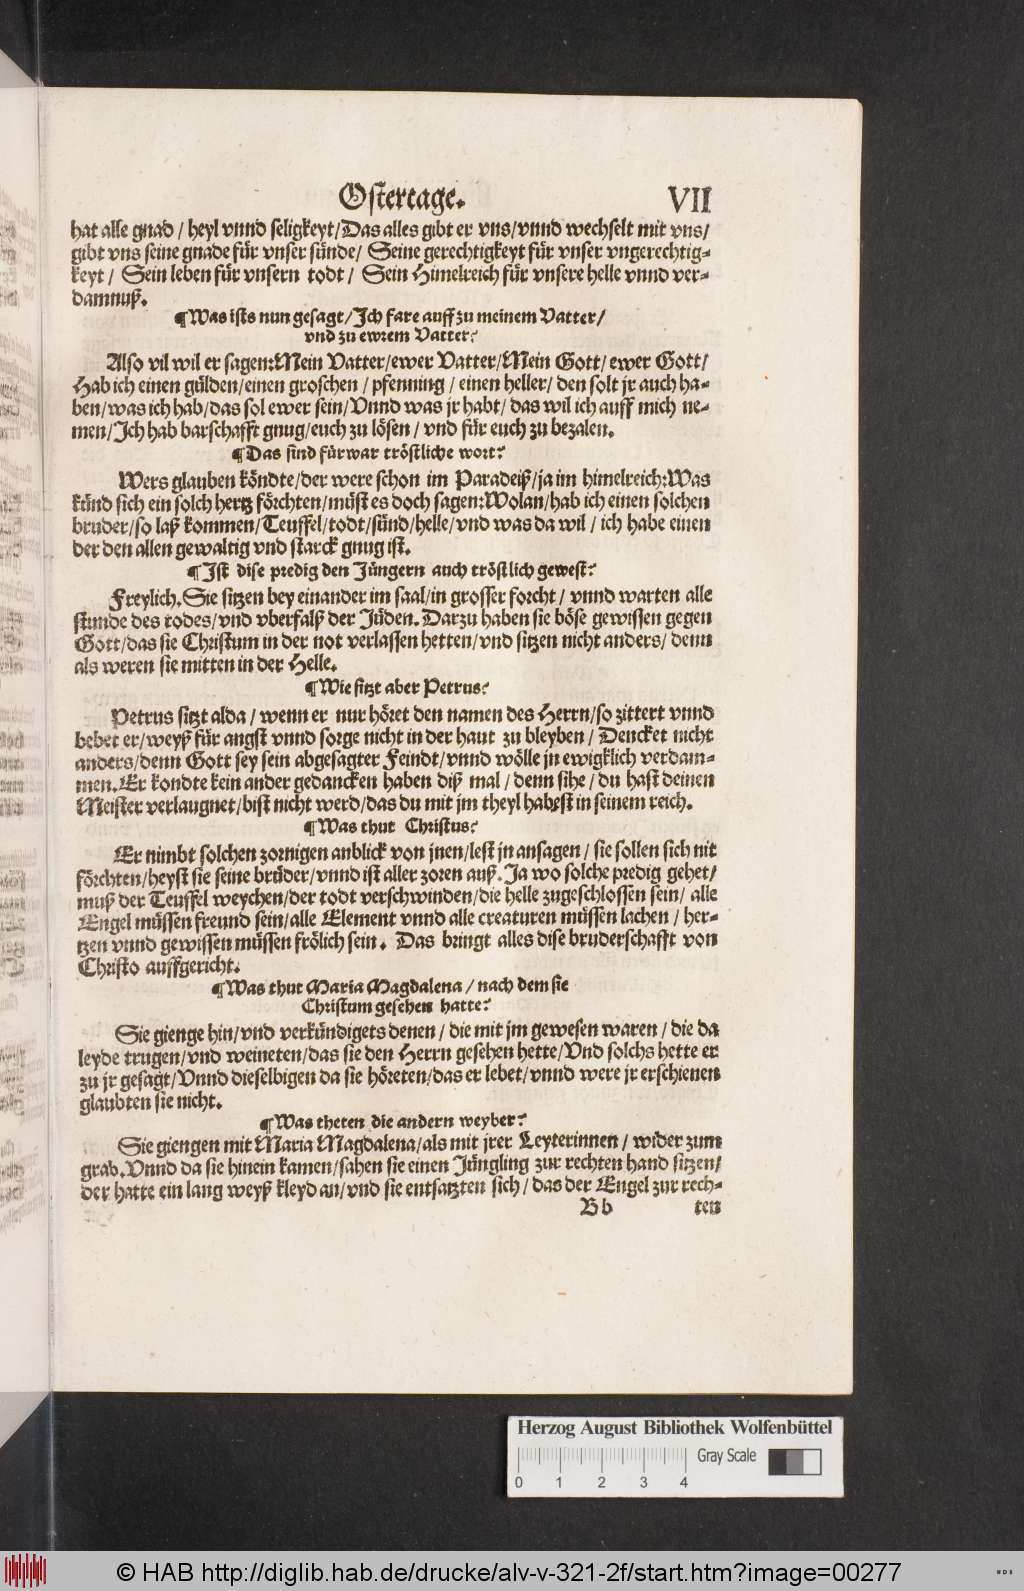 Ostertage. VII
hat alle gnad / heyl vnnd seligkeyt/Das alles gibt er vns/vnnd wechselt mit vns/
gibt vns seine gnade für vnser sünde/ Seine gerechtigkeyt für vnser vngerechtig-
keyt / Sein leben für vnsern todt / Sein Himelreich für vnsere helle vnnd ver-
damnuß.
¶Was ists nun gesagt/Ich fare auff zu meinem Vatter/
vnd zu ewrem Vatter?
Also vil wil er sagen:Mein Vatter/ewer Vatter/Mein Gott/ ewer Gott/
Hab ich einen gülden/einen groschen / pfenning / einen heller/ den solt jr auch ha-
ben/was ich hab/das sol ewer sein/Vnnd was jr habt/ das wil ich auff mich ne-
men/Ich hab barschafft gnug/euch zu lösen / vnd für euch zu bezalen.
¶Das sind fürwar tröstliche wort?
Wers glauben köndte/der were schon im Paradeiß/ja im himelreich:Was
künd sich ein solch hertz förchten/müst es doch sagen:Wolan/hab ich einen solchen
bruder/so laß kommen/Teuffel/todt/sünd/helle/vnd was da wil / ich habe einen
der den allen gewaltig vnd starck gnug ist.
¶Ist dise predig den Jüngern auch tröstlich gewest?
Freylich.Sie sitzen bey einander im saal/in grosser forcht / vnnd warten alle
stunde des todes/vnd vberfalß der Jüden.Darzu haben sie böse gewissen gegen
Gott/das sie Christum in der not verlassen hetten/vnd sitzen nicht anders/ denn
als weren sie mitten in der Helle.
¶Wie sitzt aber Petrus?
Petrus sitzt alda / wenn er nur höret den namen des Herrn/so zittert vnnd
bebet er/weyß für angst vnnd sorge nicht in der haut zu bleyben / Dencket nicht
anders/denn Gott sey sein abgesagter Feindt/vnnd wölle jn ewigklich verdam-
men.Er kondte kein ander gedancken haben diß mal / denn sihe / du hast deinen
Meister verlaugnet/bist nicht werd/das du mit jm theyl habest in seinem reich.
¶Was thut Christus?
Er nimbt solchen zornigen anblick von jnen/lest jn ansagen / sie sollen sich nit
förchten/heyst sie seine brüder/vnnd ist aller zoren auß.Ja wo solche predig gehet/
muß der Teuffel weychen/der todt verschwinden/die helle zugeschlossen sein/ alle
Engel müssen freund sein/alle Element vnnd alle creaturen müssen lachen / her-
tzen vnnd gewissen müssen frölich sein. Das bringt alles dise bruderschafft von
Christo auffgericht.
¶Was thut Maria Magdalena / nach dem sie
Christum gesehen hatte?
Sie gienge hin/vnd verkündigets denen / die mit jm gewesen waren / die da
leyde trugen/vnd weineten/das sie den Herrn gesehen hette/Vnd solchs hette er
zu jr gesagt/Vnnd dieselbigen da sie höreten/das er lebet/vnnd were jr erschienen
glaubten sie nicht.
¶Was theten die andern weyber?
Sie giengen mit Maria Magdalena/als mit jrer Leyterinnen / wider zum
grab.Vnnd da sie hinein kamen/sahen sie einen Jüngling zur rechten hand sitzen/
der hatte ein lang weyß kleyd an/vnd sie entsatzten sich / das der Engel zur rech-
Bb ten
Herzog August Bibliothek Wolfenbüttel
Gray Scale
0 1 2 3 4
© HAB http://diglib.hab.de/drucke/alv-v-321-2f/start.htm?image=00277